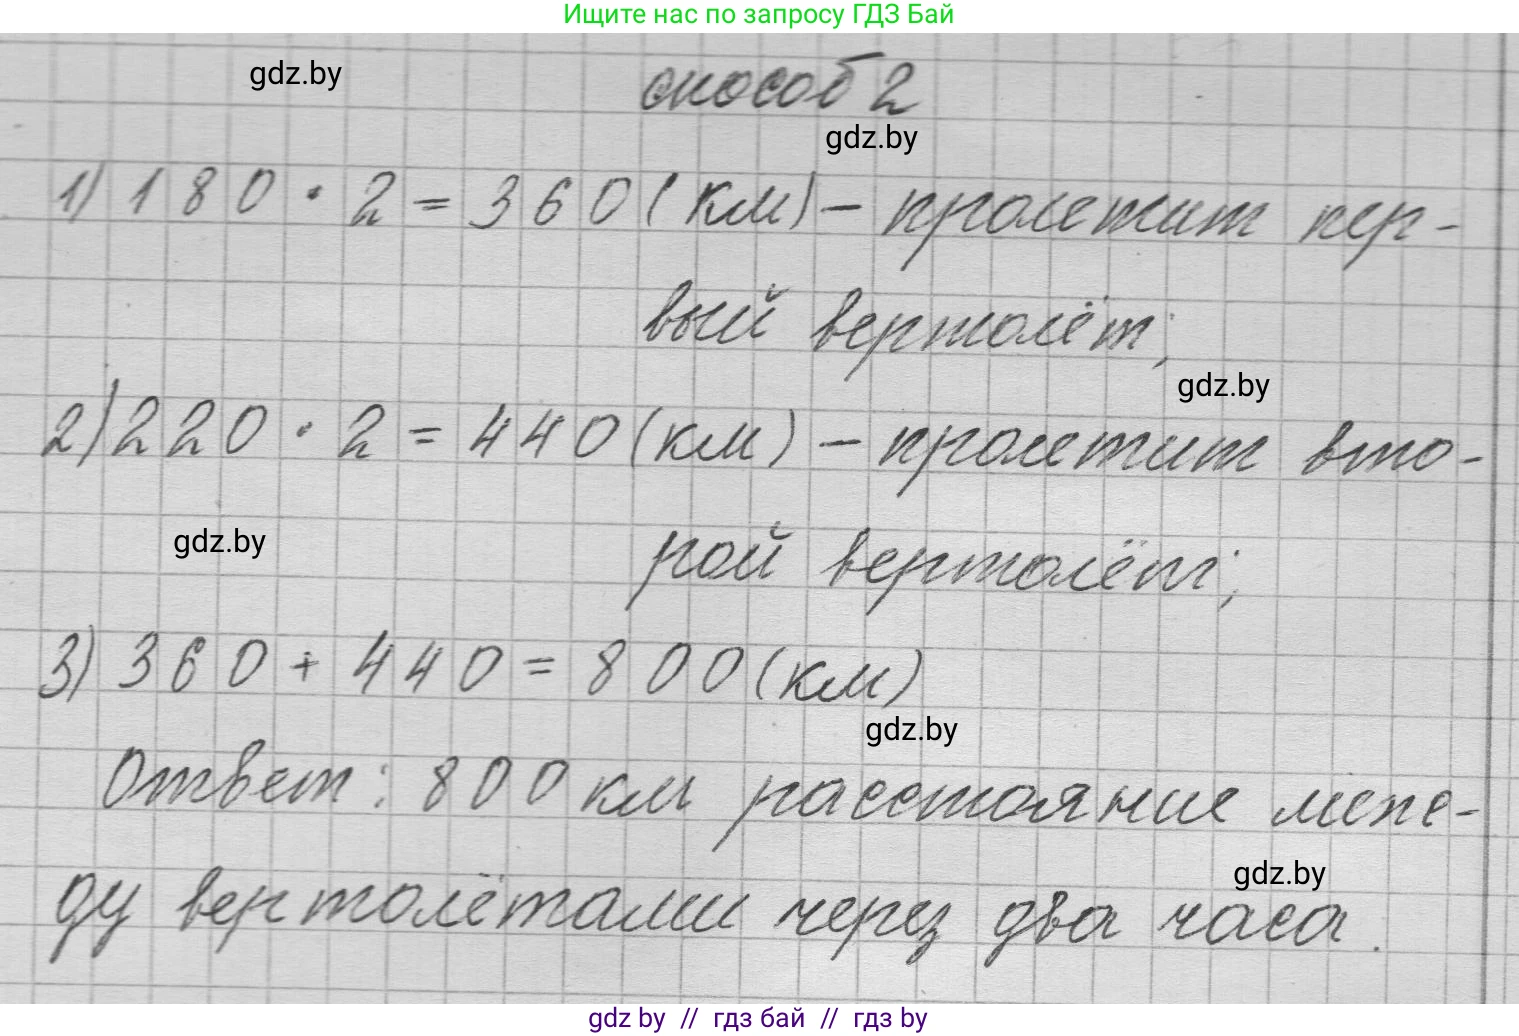 Ищите нас по запросу ГДЗ Бай
gdz.by
способ 2
gdz.by
1) 180 · 2 = 360 (км) – пролетит пер-
вый вертолёт;
gdz.by
2) 220 · 2 = 440 (км) – пролетит вто-
gdz.by
рой вертолёт;
3) 360 + 440 = 800 (км)
gdz.by
Ответ: 800 км расстояние меж-
gdz.by
ду вертолётами через два часа.
gdz by // гдз бай // гдз by